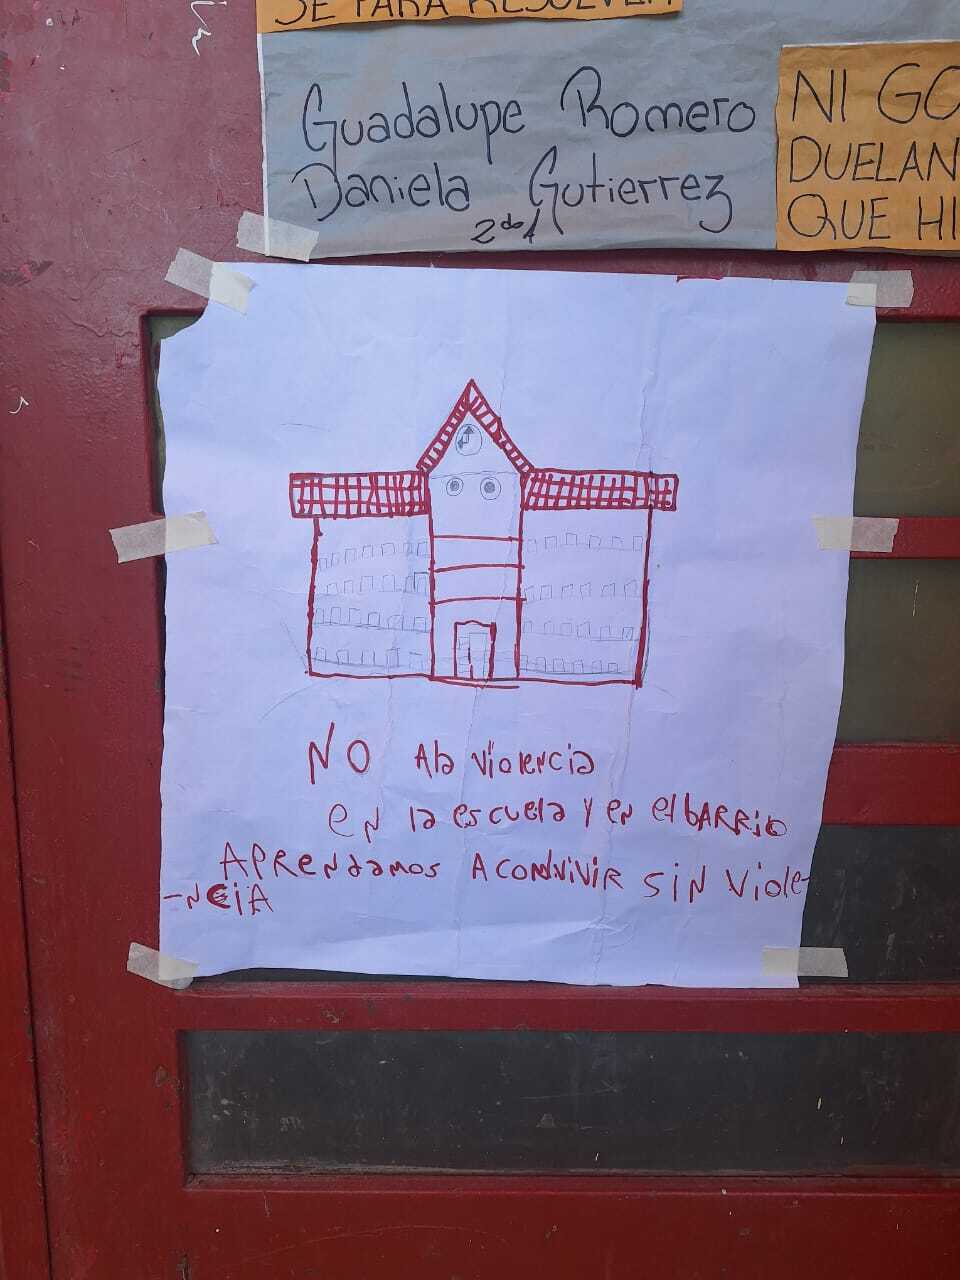 SE PARA RESOLVER
Guadalupe Romero
Daniela Gutierrez
2do 1
NI GO
DUELAN
QUE HI
NO Ala violencia
en la escuela y en el bARRio
APRendamos A convivir sin viole-
-nciA